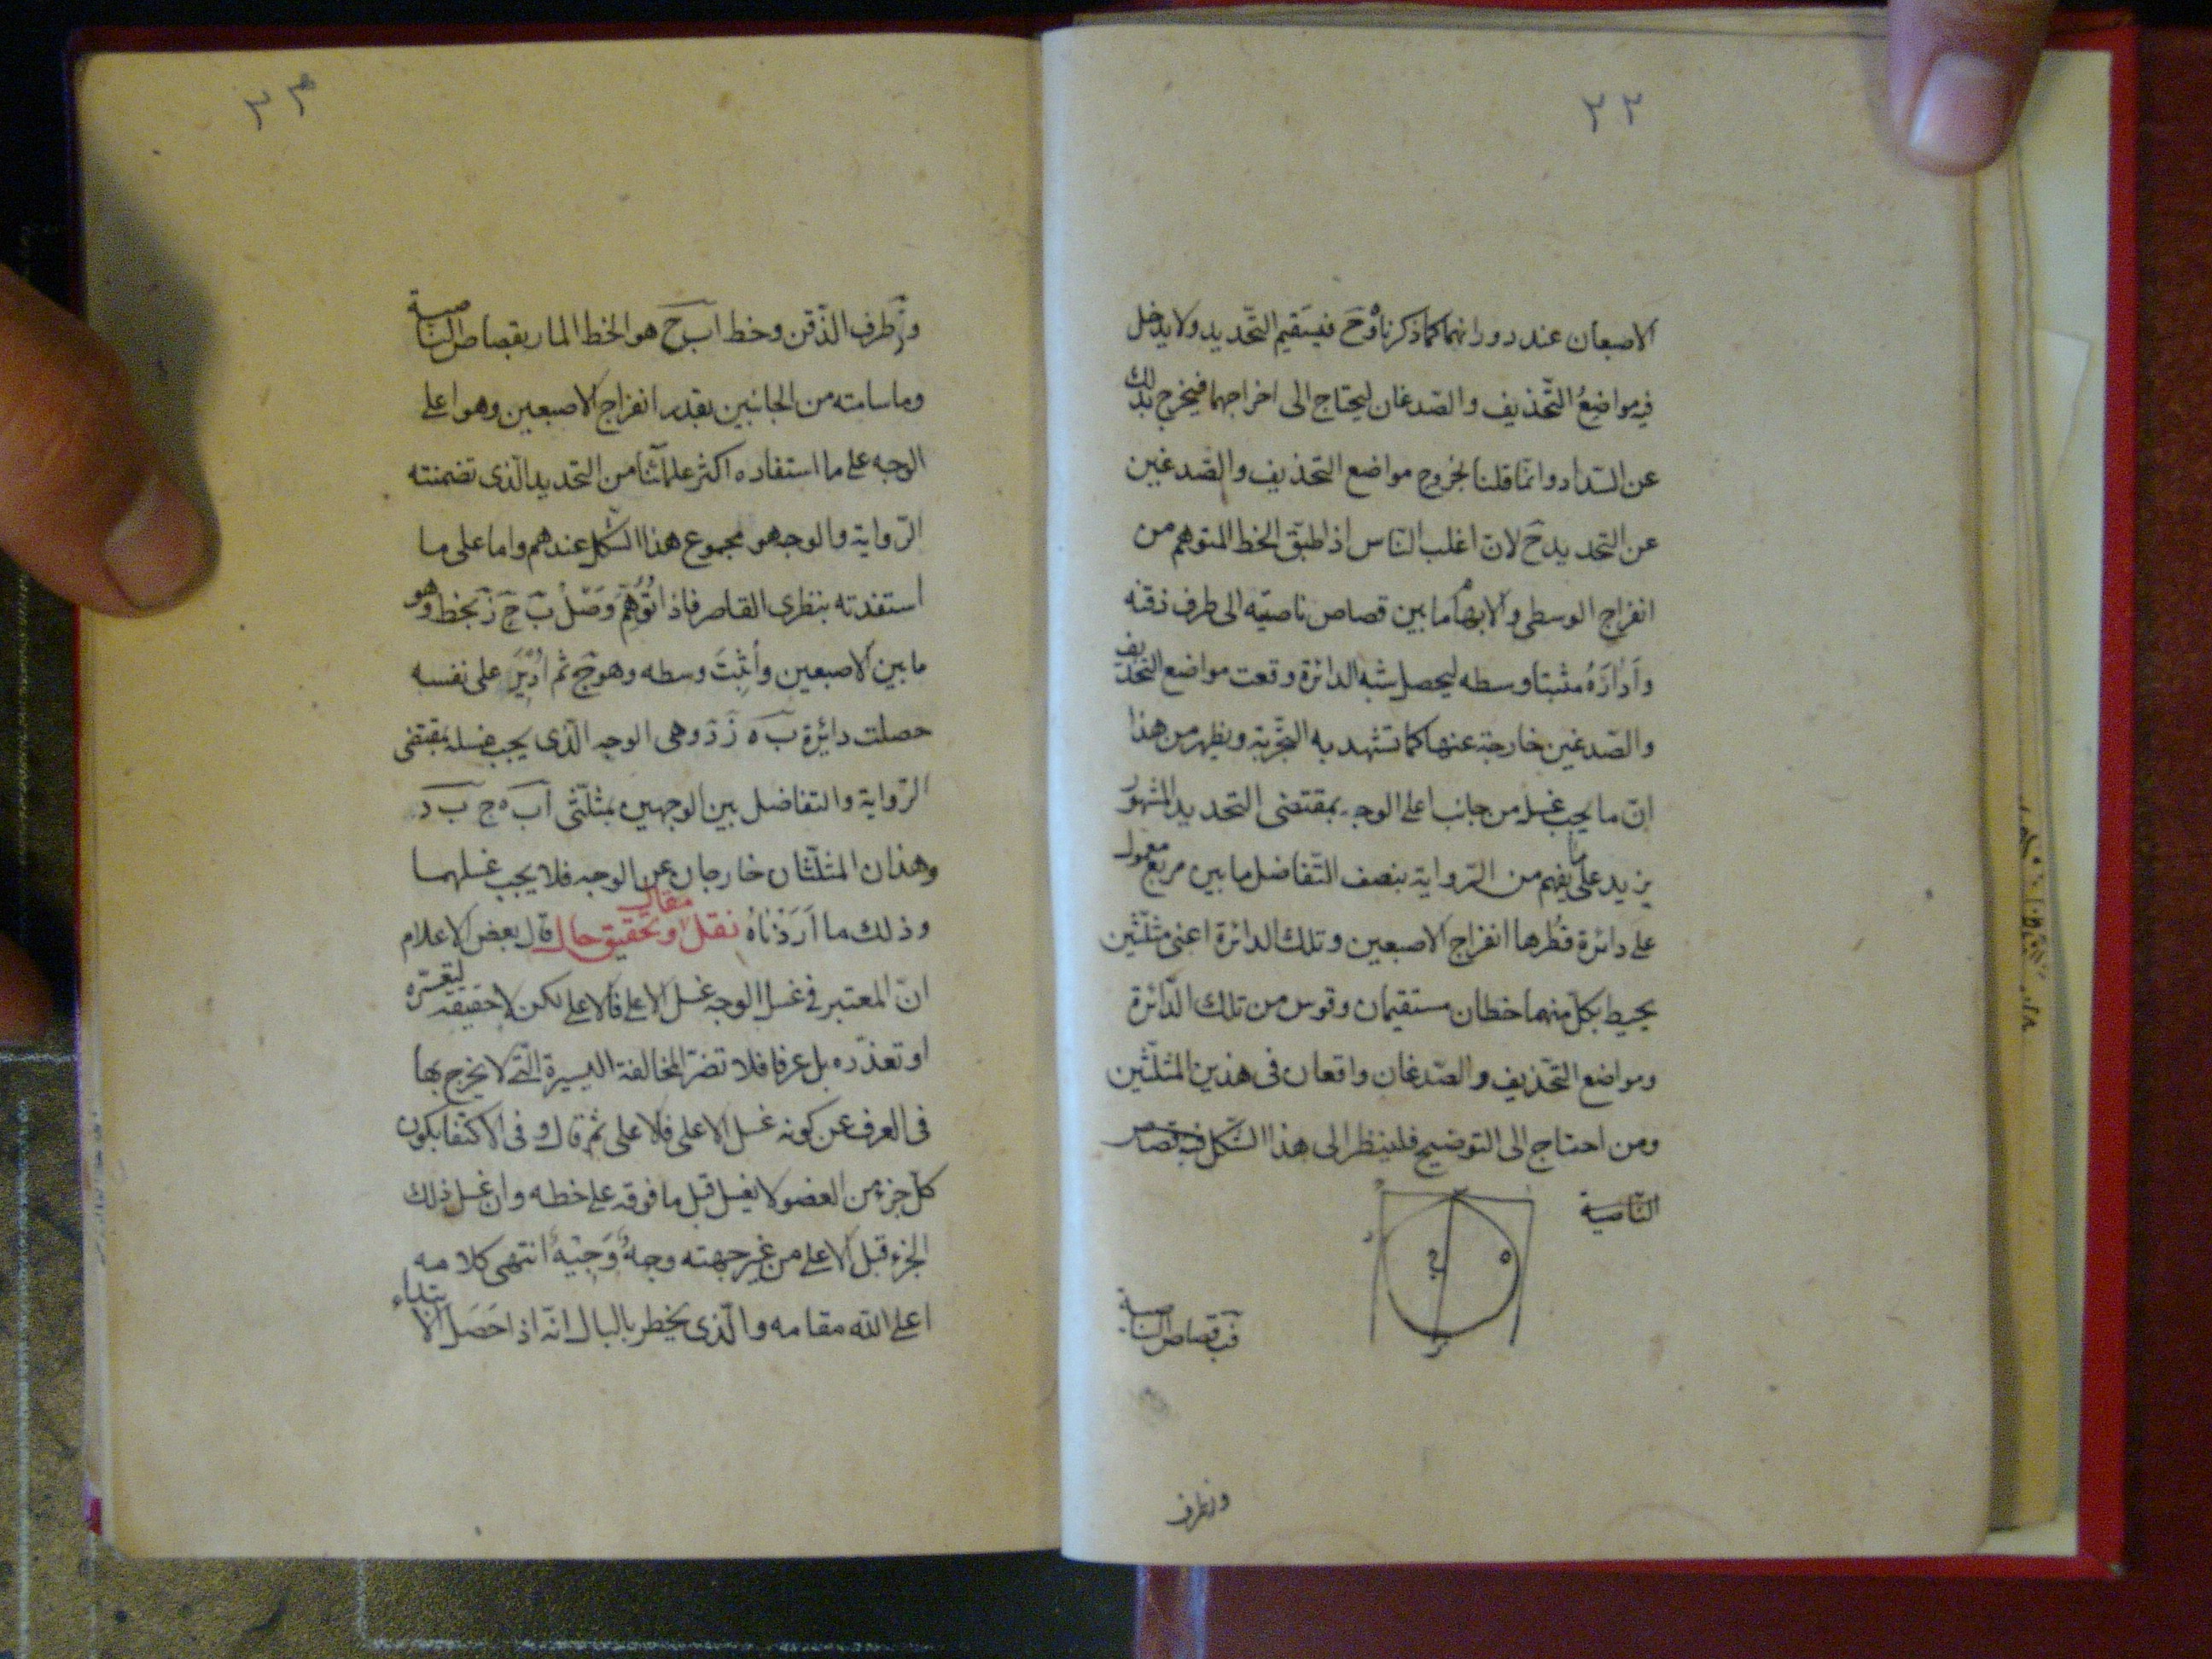 ٢٢
الاصبعان عند دورانهما كما ذكرناه وح فيستقيم التحديد ولا يدخل
فيه مواضعُ التّحذيف والصّدغان ليحتاج الى اخراجهما فيخرج بذلك
عن السّداد وانّما قلنا بخروج مواضع التحذيف والصّدغين
عن التحديد ح لانّ اغلب النّاس اذا طبّق الخط المتوهم من
انفراج الوسطى والابهام ما بين قصاص ناصيته الى طرف ذقنه
وَاَدارَهُ مثبتا وسطه ليحصل شبه الدائرة وقعت مواضع التحذيف
والصّدغين خارجة عنها كما تشهد به التّجربة ويظهر من هذا
انّ ما يجب غسله من جانب اعلى الوجه بمقتضى التحديد المشهور
يزيد على ما يفهم من الرّواية بنصف التّفاضل ما بين مربع معمول
على دائرة قُطرها انفراج الاصبعين وتلك الدائرة اعنى مثلّثين
يحيط بكلّ منهما خطان مستقيمان وقوس من تلك الدّائرة
ومواضع التحّذيف والصّدغان واقعان فى هذين المثلّثين
ومن احتاج الى التوضيح فلينظر الى هذا الشّكل فب قصاص
النّاصية
ه
ج
فب قصاص الناصية
وز طرف
٢٣
وز طرف الذّقن وخط اب ح هو الخط المار بقصاص النّاصية
وما سامته من الجانبين بقدر انفراج الاصبعين وهو اعلى
الوجه على ما استفاده اكثر علمائنا من التحديد الّذى تضمنته
الرّواية والوجه هو مجموع هذا الشّكل عندهم واما على ما
استفدته بنظرى القاصر فاذا تُوُهِّمَ وَصْلُ ب ج ز بخط وهو
ما بين الاصبعين وأُثْبِتَ وسطه وهو ج ثم اُدِيْرَ على نفسه
حصلت دائرة ب ه ز د وهى الوجه الّذى يجب غسله بمقتضى
الرّواية والتفاضل بين الوجهين بمثلّثى اب ه ج ب د
وهذان المثلّثان خارجان عن الوجه فلا يجب غسلهما
وذلك ما اَرَدْنَاهُ نقل مقال وتحقيق حال قال بعض الاعلام
انّ المعتبر فى غسل الوجه غسل الاعلى فالاعلى لكن لا حقيقة لتعسّره
او تعذّره بل عرفا فلا تضرّ المخالفة اليسيرة الّتى لا يخرج بها
فى العرف عن كونه غسل الاعلى فلاعلى ثم قال و فى الاكتفا بكون
كلّ جزء من العضو لا يغسل قبل ما فوقه على خطه وان غسل ذلك
الجزء قبل الاعلى من غير جهته وجهٌ وَجِيْهٌ انتهى كلامه
اعلى اللّه مقامه والّذى يخطر بالبال انّه اذا حَصَل الابتداء